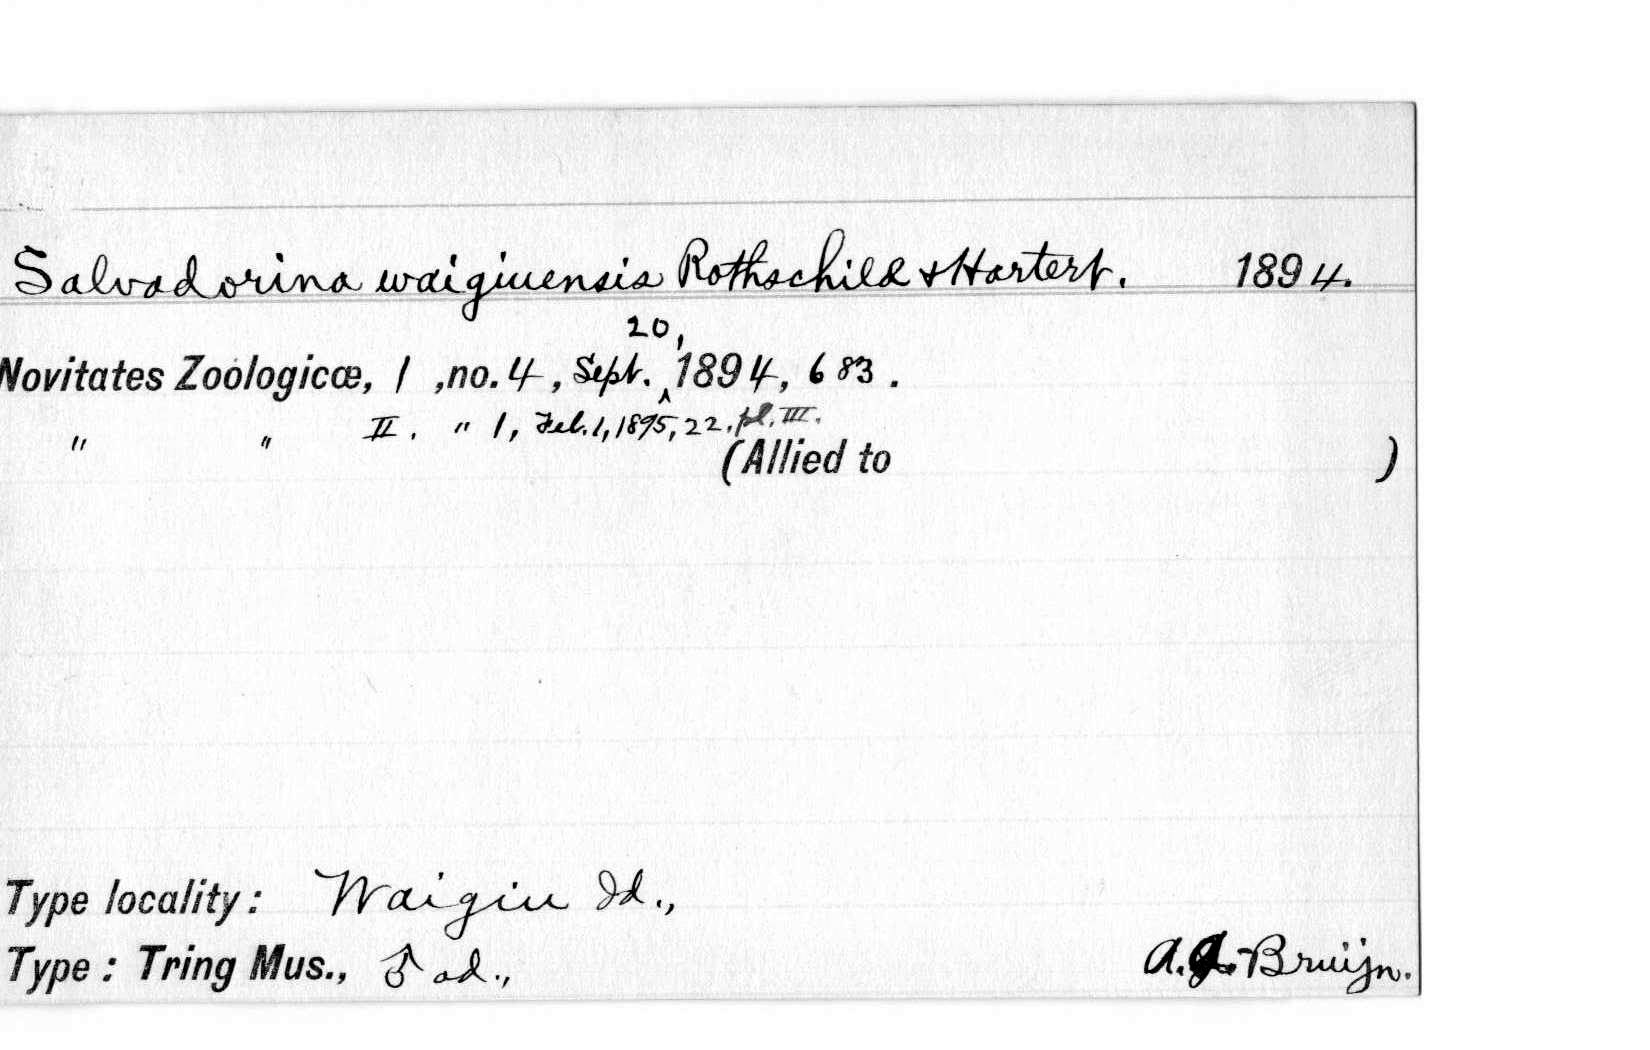 Salvadorina waigiuensis Rothschild & Hartert. 1894.
20,
Novitates Zoologicæ, I ,no. 4, Sept. ^ 1894, 683.
" " II. " 1, Feb. 1, 1895, 22. pl. III.
(Allied to )
Type locality: Waigiu Id.,
Type: Tring Mus., ♂ ad., Bruijn.